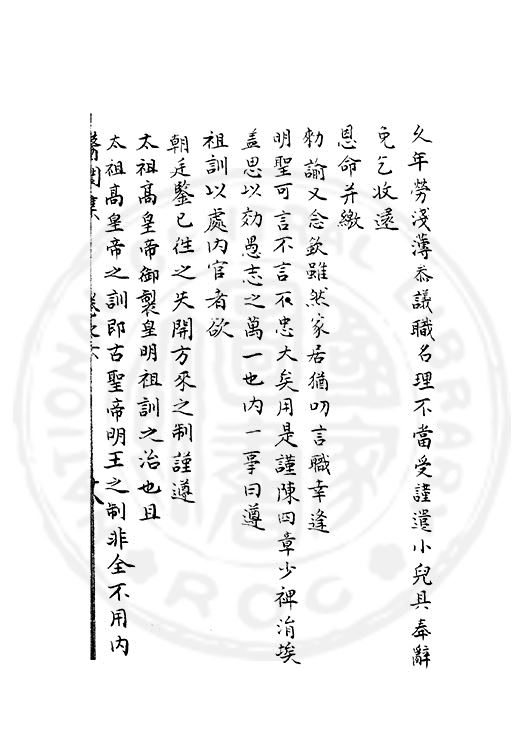 久年勞淺薄叅議職名理不當受謹遣小兒具奉辭
免乞收還
恩命并繳
勑諭又念欽雖然家居猶叨言職幸逢
明聖可言不言不忠大矣用是謹陳四章少裨涓埃
盖思以効愚志之萬一也內一事曰遵
祖訓以處內官者欲
朝廷鑒已徃之失開方來之制謹遵
太祖高皇帝御製皇明祖訓之治也且
太祖高皇帝之訓卽古聖帝明王之制非全不用內